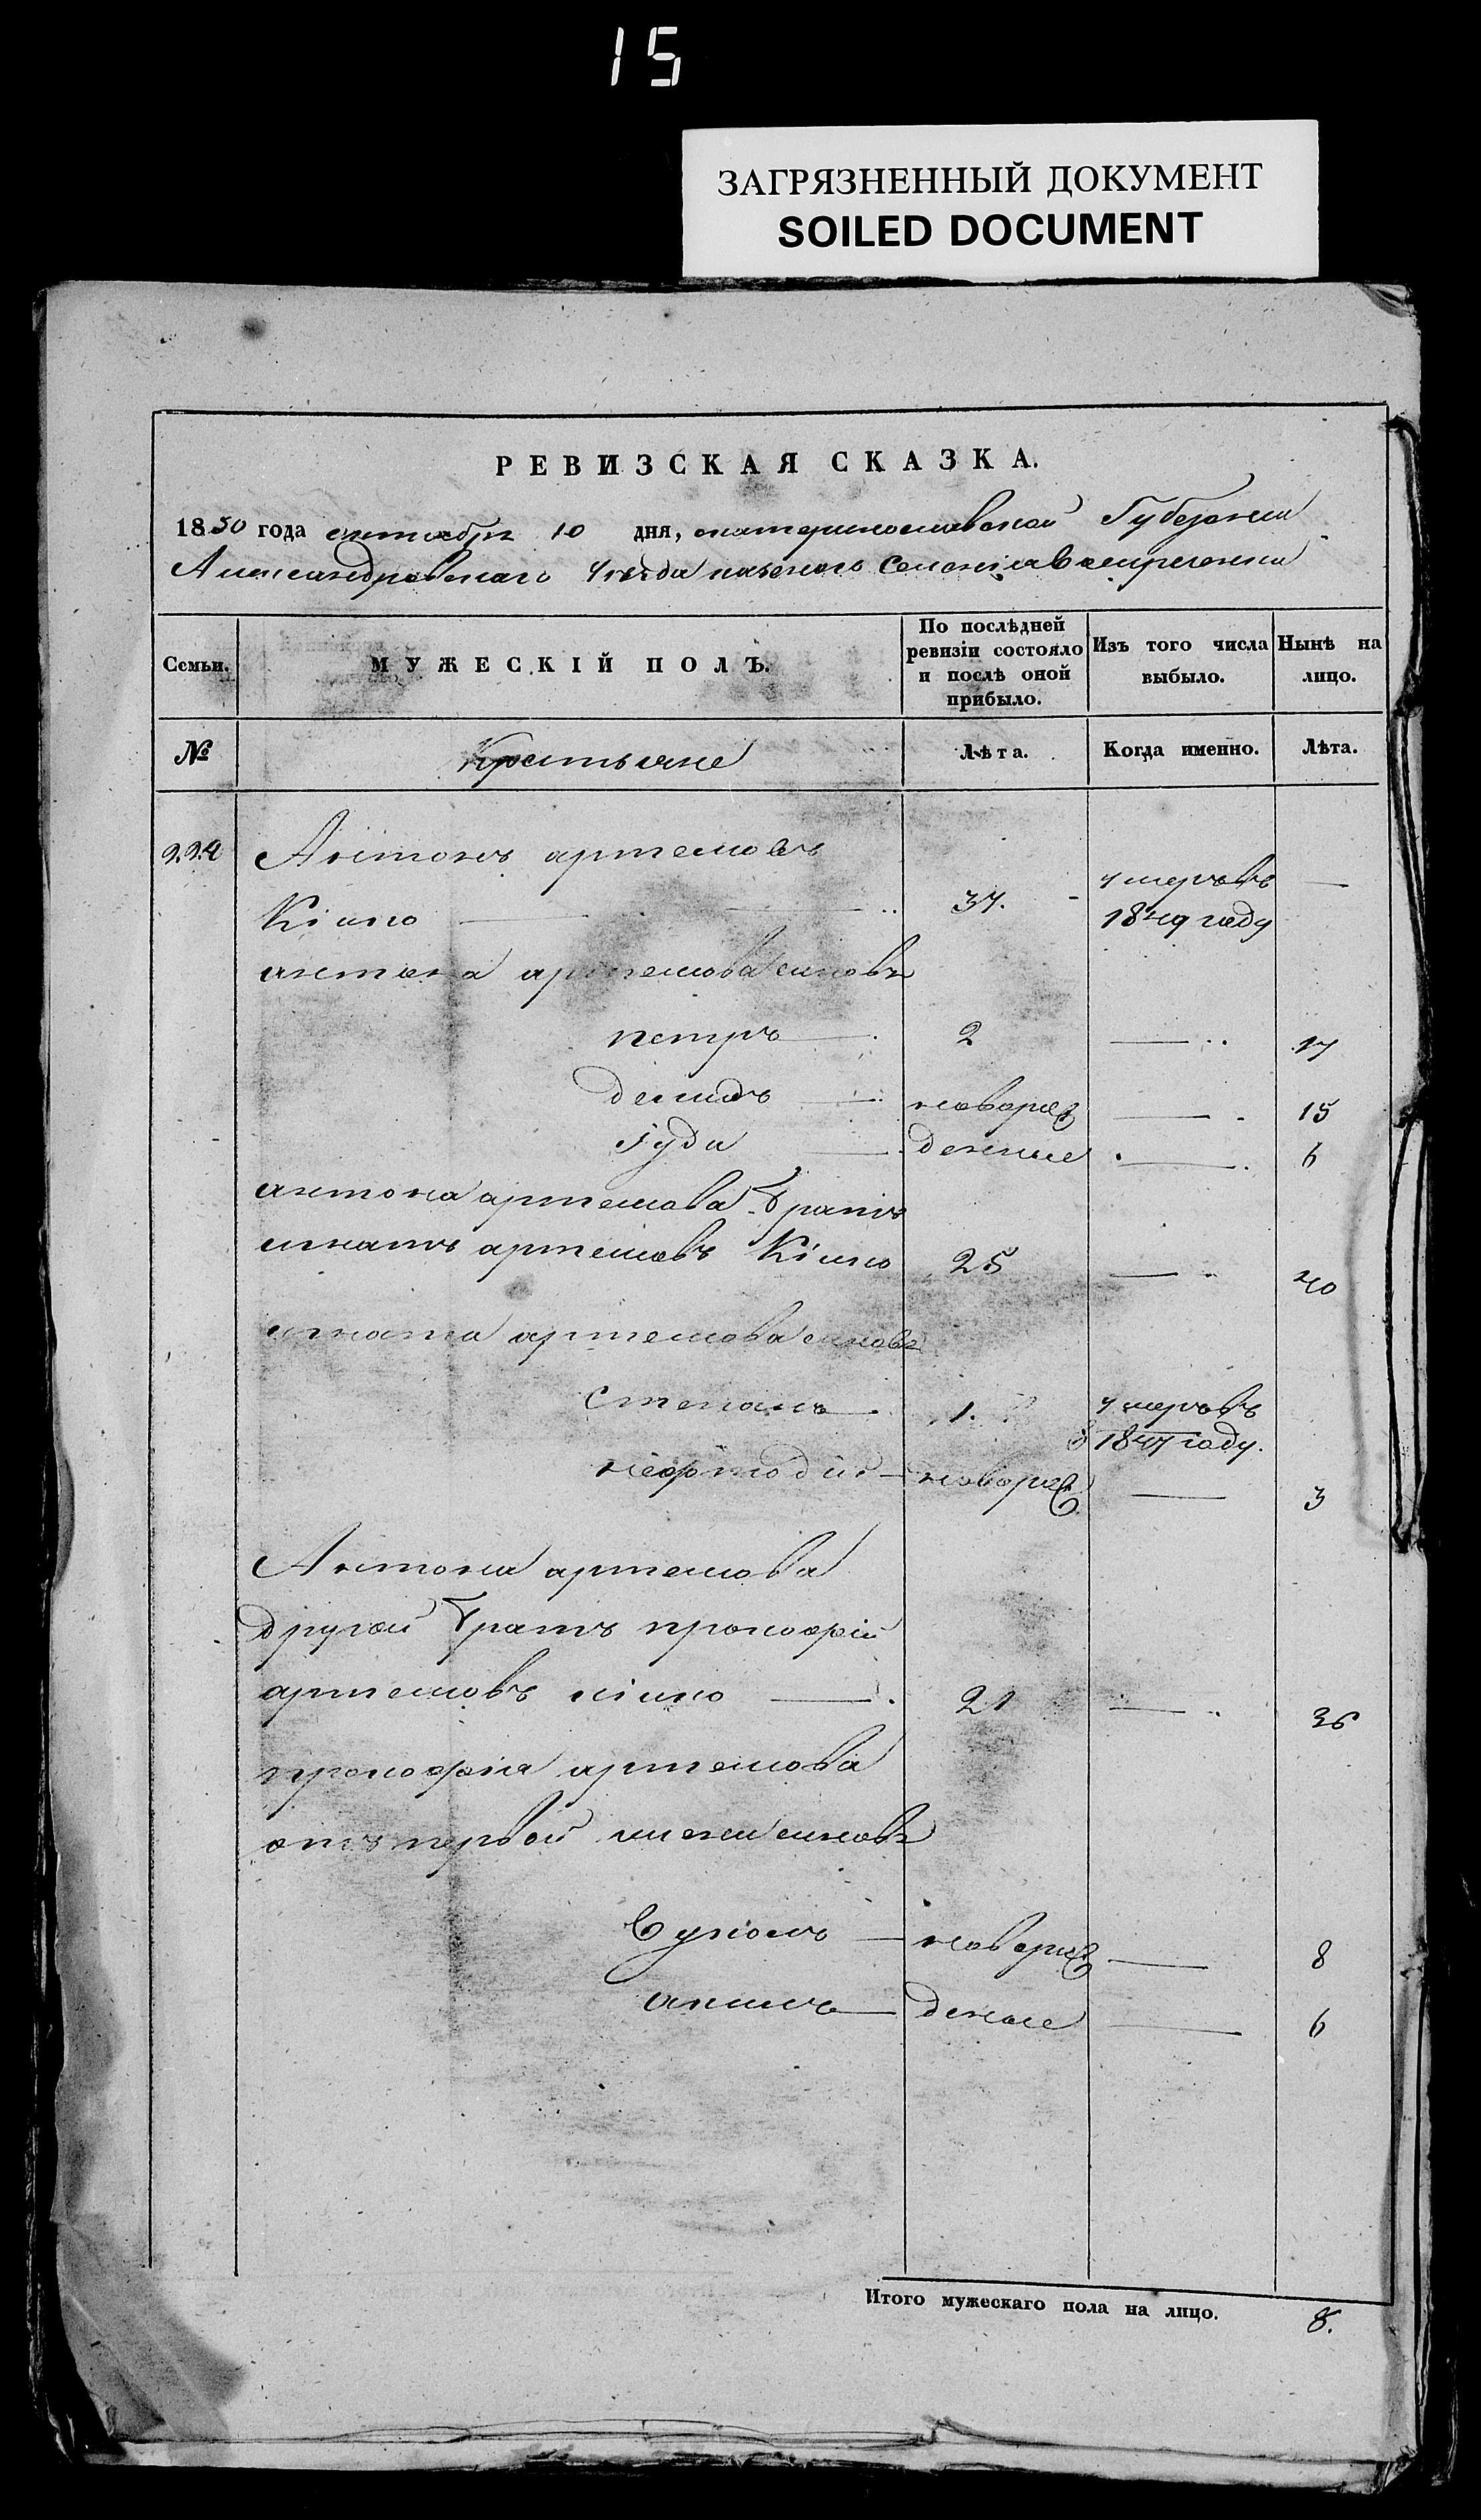 15
ЗАГРЯЗНЕННЫЙ ДОКУМЕНТ
SOILED DOCUMENT
РЕВИЗСКАЯ СКАЗКА.
1850 года октября 10 дня, екатеринославской Губернии
Александровскаго Уезда казеного Селения Воскресенки
Семьи. МУЖЕСКІЙ ПОЛЪ. По послѣдней ревизіи состояло и послѣ оной прибыло. Изъ того числа выбыло. Нынѣ на лицо.
№ Крестьяне Лѣта. Когда именно. Лѣта.
224 Антонъ артемовъ
Кішко 37. умеръ въ 1849 году
антона артемова синовя
петръ 2 17
демидъ новорож 15
іуда денные 6
антона артемова братъ
игнатъ артемовъ Кішко 25 40
игната артемова синовя
степанъ 1. умеръ в 1847 году.
новорож 3
Антона артемова
другой братъ прокофій
артемовъ кішко 21 36
прокофія артемова
отъ первой жени синовя
новорож 8
акимъ деные 6
Итого мужескаго пола на лицо. 8.